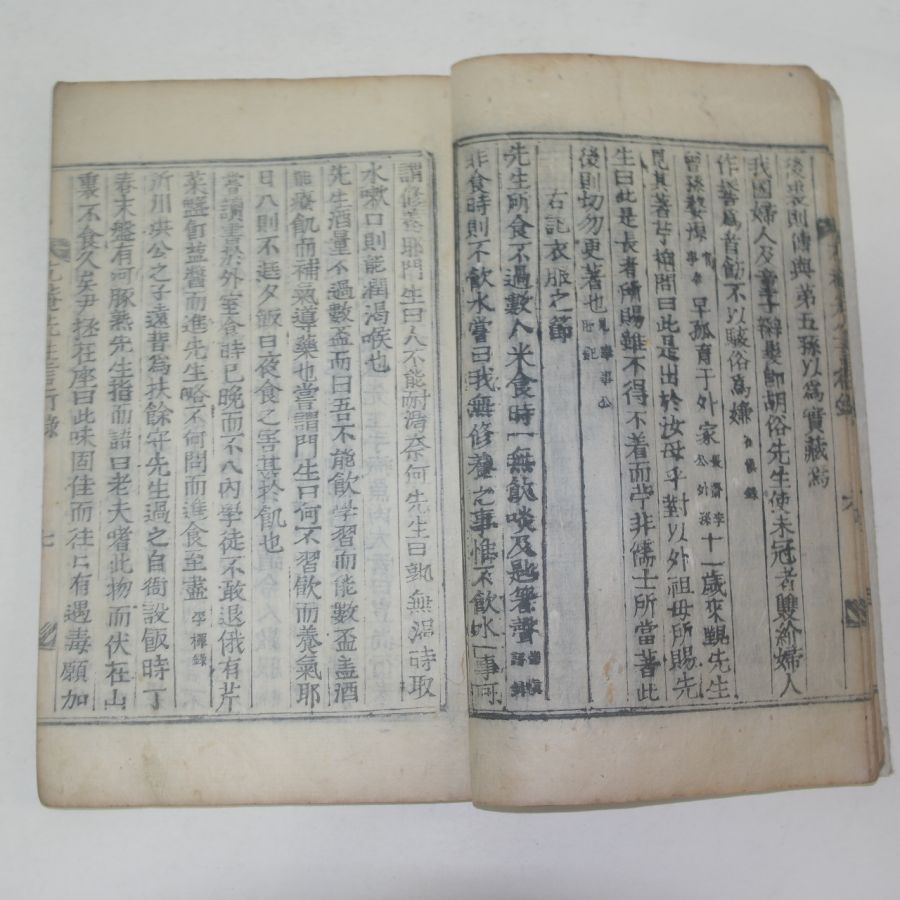 後。則傳與第五孫以爲寶藏焉
我國婦人及童子辮髮卽胡俗先生使未冠者雙紒婦人
作髻爲首飾不以駭俗爲嫌
曾孫婺源 早孤育于外家 十一歲來覲先生
見其著 拍問曰此是出於汝母乎對以外祖母所賜先
生曰此是長者所賜雖不得不着而 非儒士所當著此
後則切勿更著也
右記衣服之節
先生所食不過數人米食時一無飮啖及匙箸聲
非食時則不飮水嘗曰我無修養之事惟不飮水一事可
謂修養耶門生曰人不能耐渴奈何先生曰孰無渴時取
水嗽口則能潤渴喉也
先生酒量不過數盃而曰吾不能飮学習而能數盃盖酒
能療飢而補氣導藥也嘗謂門生曰何不習飮而養氣耶
日人則不進夕飯曰夜食之害甚於飢也
嘗讀書於外室食時已晩而不入內學徒不敢退俄有芹
菜盤飣葅醬而進先生略不何問而進食至盡 李樿錄
所川 公之子遠昔爲扶餘守先生過之自衙設飯時丁
春末盤有河豚羔先生指而語曰老夫嗜此物而伏在山
裏不食久矣尹拯在座曰此味固佳而往往有遇毒願加
七